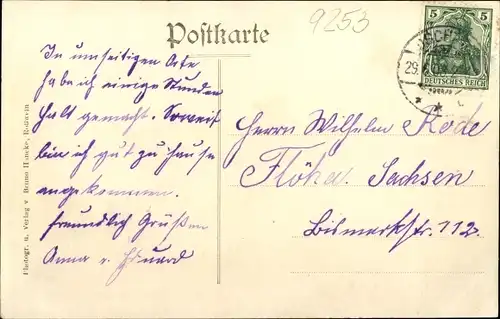 9253
Postkarte
5
DEUTSCHES REICH
29.
In umseitigen Orte
habe ich einige Stunden
Halt gemacht. Soweit
bin ich gut zu Hause
angekommen.
Freundlich Grüßen
Anna u. Eduard
Herrn Wilhelm Rode
Flöha. Sachsen
Bismarkstr. 112.
Photogr. u. Verlag v. Bruno